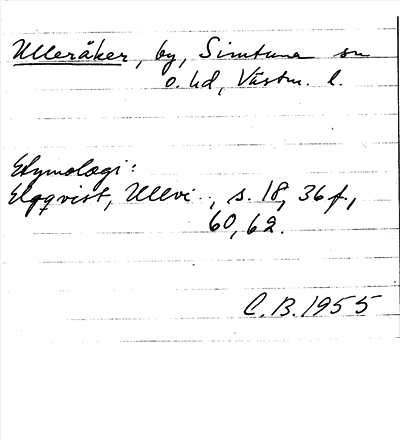 Ulleråker, by, Simtuna sn
o. hd, Västm. l.
Etymologi:
Elgqvist, Ullvi.., s. 18, 36 f.,
60, 62.
C.B. 1955